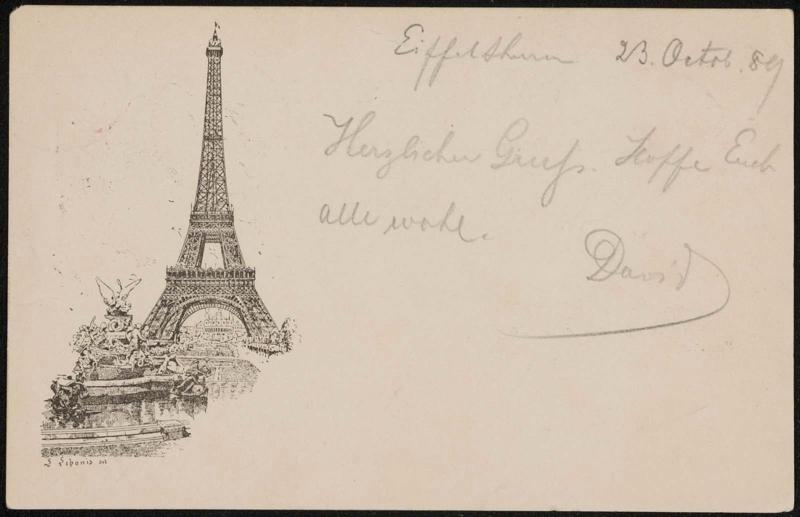 Eiffelthurm 23. Octob. 89
Herzlichen Gruß. Hoffe Euch
alle wohl.
David
L Libonis del